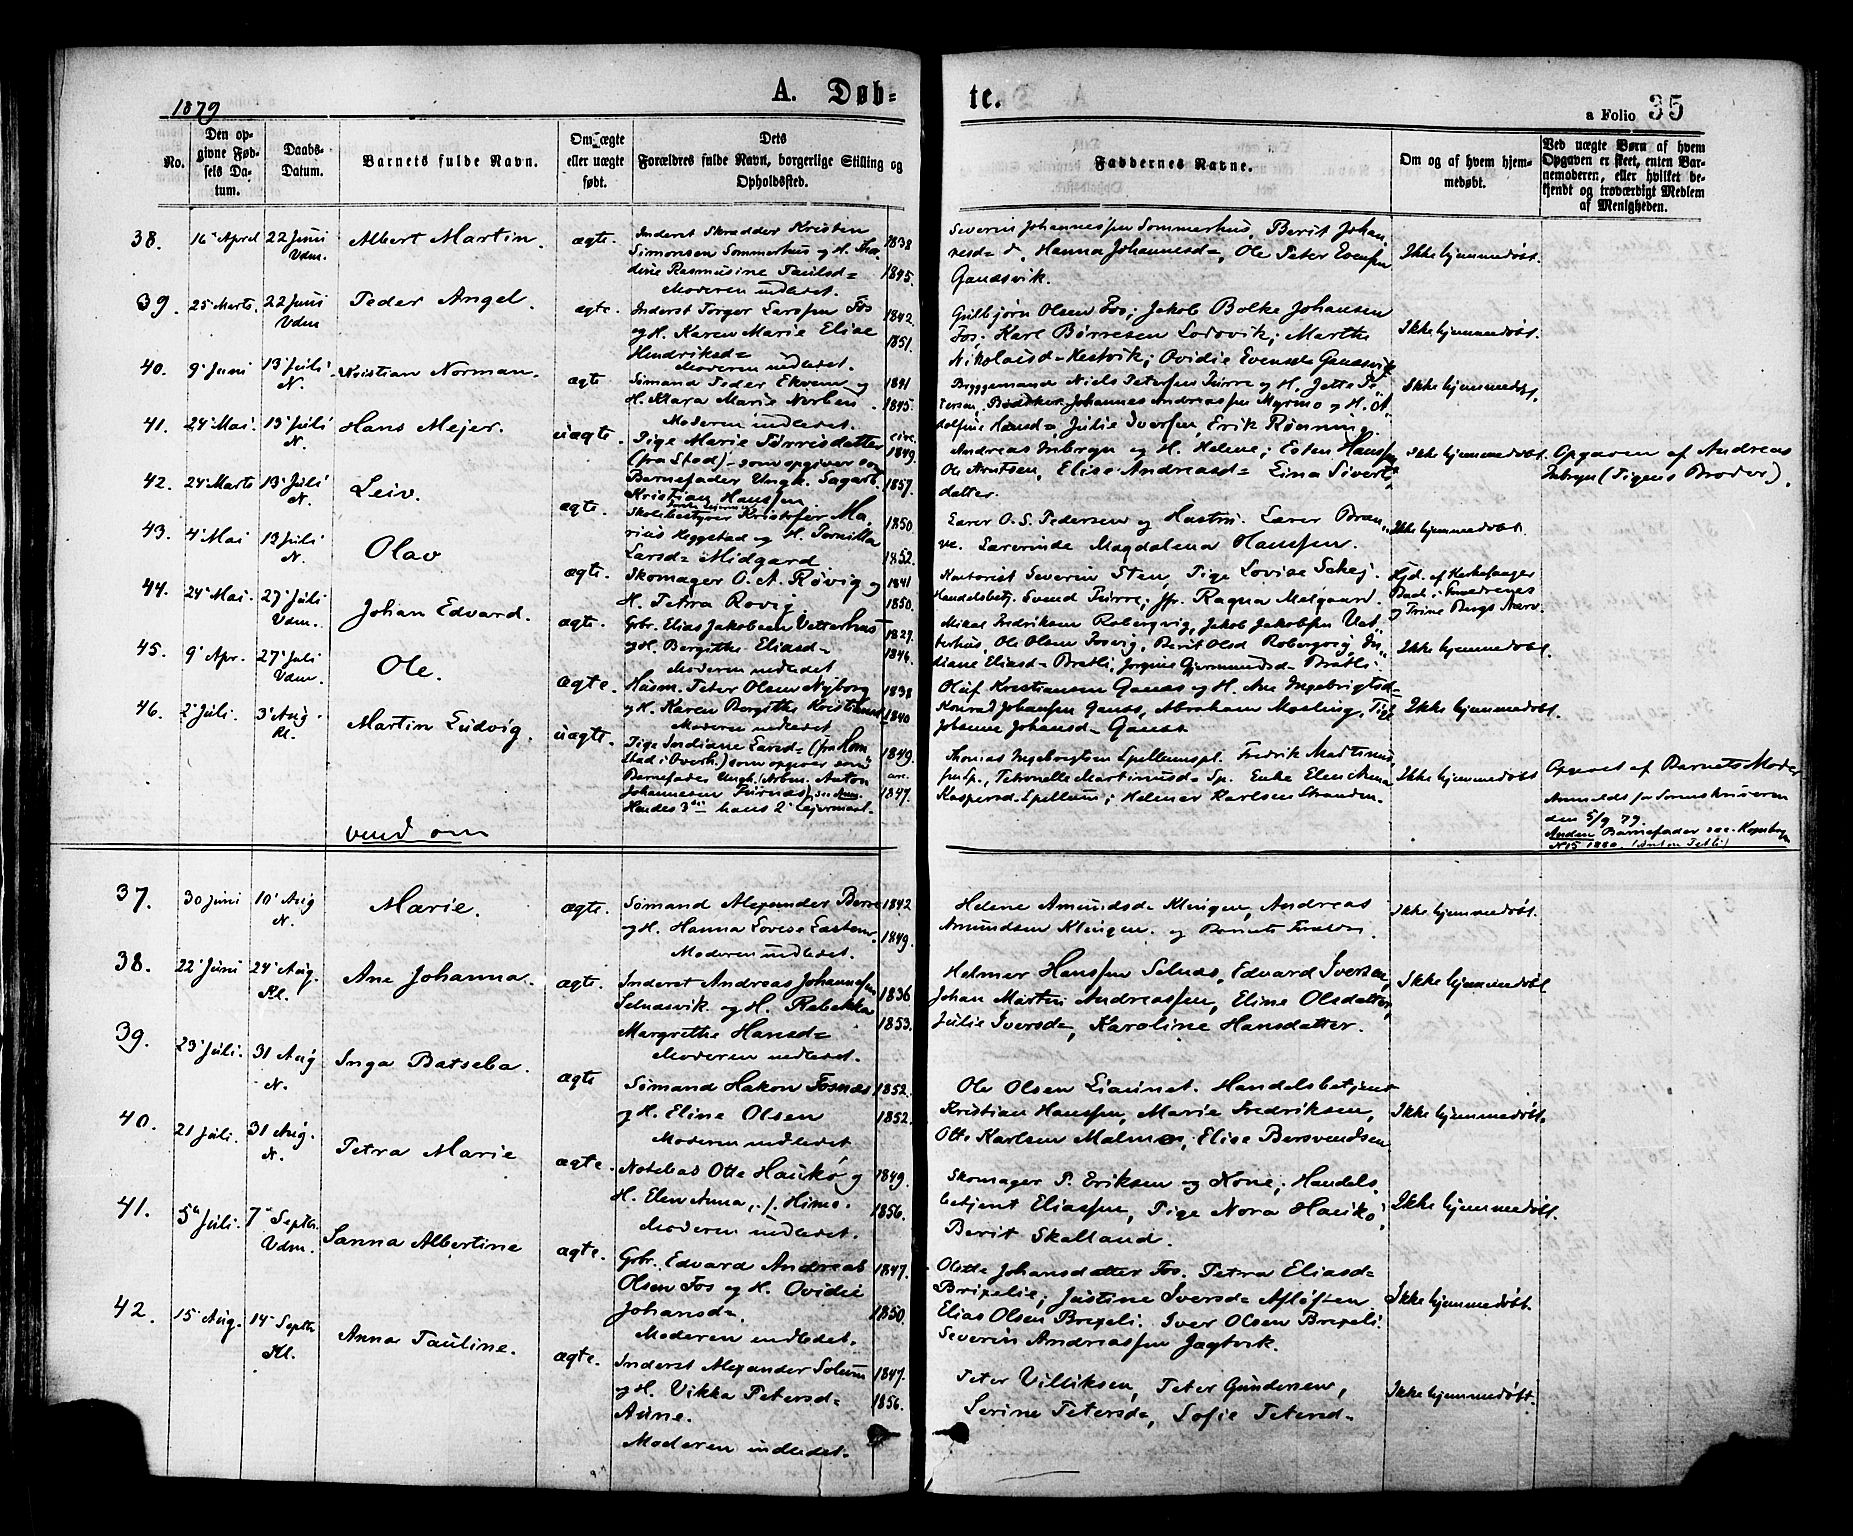 1879
A. Døb-
te.
a Folio 35
No.
Den op-
givne Fød-
sels Da-
tum.
Daabs-
Datum.
Barnets fulde Navn.
Om ægte
eller uægte
født.
Dets
Forældres fulde Navn, borgerlige Stilling og
Opholdssted.
Faddernes Navne.
Om og af hvem hjem-
medøbt.
Ved uægte Børn af hvem
Opgaven er skeet, enten Bar-
nemoderen, eller hvilket be-
kjendt og troværdigt Medlem
af Menigheden.
38. 16' April 22' Juni Vdm. Albert Martin. ægte.
Inderst Skrædder Kristen 1838
Simonsen Sommerhus og H. Tho-
dine Rasmusine Paulsd= 1845.
Moderen indledet.
Severin Johannessen Sommerhus, Berit Johan-
nesd= d, Hanna Johannesd=, Ole Peter Evensen
Ganesvik.
Ikke hjemmedøbt.
39. 25' Marts. 22' Juni Vdm Peder Angel. ægte.
Inderst Torger Larssen Fos 1842.
og H. Karen Marie Elise 1851.
Hendriksd=
Moderen indledet.
Gulbjørn Olsen Fos; Jakob Bolke Johansen
Fos; Karl Børresen Lodovik; Marthe
Nikolaisd= Kestvik; Ovidie Evensd= Ganesvik
Ikke hjemmedøbt.
40. 9' Juni 13' Juli N. Kristian Norman. ægte
Sømand Peder Ekvem og 1841
H. Klara Marie Norben 1845.
Moderen indledet.
Bryggemand Niels Petersen Furre og H. Jette Pe-
tersen, Bødker Johannes Andreassen Myrmo og H.
dolfine Hansd=, Julie Iversen, Erik Rønning.
Ikke hjemmedøbt.
41. 24' Mai. 13' Juli N. Hans Mejer. uægte.
Pige Marie Tørrisdatter circ. 1849.
(fra Stod) - som opgiver som
Barnefader Ungk. Sagarb. 1857.
Kristian Hanssen
Andreas Imbryn og H. Helene; Esten Hanssen
Ole Arntsen, Elise Andreasd= Lina Siverts-
datter.
Ikke hjemmedøbt.
Opgaven af Andreas
Imbryn (Pigens Broder).
42. 24' Marts 13' Juli N. Leiv. ægte.
Skolebestyrer Kristofer Ma- 1850
rius Heggstad og H. Pernilla
Larsd= Midgard 1852.
Lærer O. S. Pedersen og Hustru. Lærer Bran-
ve. Lærerinde Magdalena Hanssen.
Ikke hjemmedøbt.
43. 4' Mai 13' Juli N. Olav ægte.
Skomager O. A. Røvig og 1841
H. Petra Rovig. 1850.
Kontorist Severin Sten, Pige Lovise Schej.
Handelsbetj. Svend Furre; Jfr. Ragna Melgaard.
Hjd. af Kirkesanger
Bach i Smedenes
og Trine Bergs Nærv.
44. 24' Mai. 27' Juli Vdm. Johan Edvard. ægte.
Gbr. Elias Jakobsen Vetterhus 1827.
og H. Bergithe Eliasd= 1846.
Moderen indledet
Mikal Fredriksen Robergvig, Jakob Jakobsen Vet-
terhus, Ole Olsen Fosvig, Berit Olsd Robergvig, In-
diane Eliasd= Bratli, Jorgine Gjermundsd= Bratli.
Ikke hjemmedøbt.
45. 9' Apr. 27' Juli Vdm. Ole. ægte.
Husm. Peter Olsen Nyborg 1838
og H. Karen Bergithe Kristiansd= 1840
Moderen indledet
Oluf Kristiansen Ganæs og H. Ane Ingebrigtsd=
Konrad Johansen Ganæs, Abraham Mosling, Pige
Johanne Johansd= Ganæs.
Ikke hjemmedøbt.
46. 2' Juli. 3' Aug. Kl. Martin Ludvig. uægte.
Pige Indiane Larsd= (fra Kom- 1849.
Stad i Overh.) som opgiver som
Barnefader Ungk. Arbm. Anton
Johannesen Furnes, 1847.
Hendes 3die hans 2' Lejermaal.
Thomas Ingebrigtsen Spellumspl. Fredrik Martinus-
sen Sp., Petronelle Martinusd= Sp. Enke Elen Anna
Kaspersd= Spellum; Helmer Karlsen Stranden.
Ikke hjemmedøbt
Opgivet af Barnets Moder
Anmeldt for Sorenskriveren
den 5/9 79.
Anden Barnefader
No 15 1880.
vend om
37. 30' Juni 10' Aug N. Marie. ægte.
Sømand Alexander Berre 1842
og H. Hanna Lovise Eastenr. 1849.
Moderen indledet.
Helene Amundsd= Klingen, Andreas
Amundsen Klingen. og Barnets Forældre.
Ikke hjemmedøbt.
38. 22' Juni 24' Aug. Kl. Ane Johanna. ægte.
Inderst Andreas Johannesen 1836
Selnæsvik og H. Rebekka 1853.
Margrethe Hansd=
Moderen indledet.
Helmer Hanssen Selnæs, Edvard Iversen,
Johan Martin Andreassen, Eline Olsdatter,
Julie Iversd=, Karoline Hansdatter.
Ikke hjemmedøbt
39. 23' Juli. 31' Aug N. Inga Batseba. ægte
Sømand Hakon Fosnæs 1852.
og H. Eline Olsen 1852.
Moderen indledet.
Ole Olsen Liaunet. Handelsbetjent
Kristian Hanssen, Marie Fredriksen,
Otto Karlsen Malmo, Elise Bersvendsen
Ikke hjemmedøbt.
40. 21' Juli. 31' Aug. N. Petra Marie ægte.
Notebas Otte Haukø og 1849.
H. Elen Anna, f. Himo. 1856.
Moderen indledet.
Skomager P. Eriksen og Kone; Handels-
betjent Eliassen, Pige Nora Haukø,
Berit Skalland.
Ikke hjemmedøbt.
41. 5te Juli. 7' Septbr. Vdm. Sanna Albertine ægte.
Gbr. Edvard Andreas 1847.
Olsen Fos og H. Ovidie
Johansd=. 1850.
Moderen indledet.
Olette Johansdatter Fos. Petra Eliasd=
Brexelie; Justine Iversd= Afløften.
Elias Olsen Brexeli. Iver Olsen Brexeli.
Severin Andreassen Jagtvik.
Ikke hjemmedøbt.
42. 15' Aug. 14' Septbr Kl. Anna Pauline. ægte.
Inderst Alexander Solum 1847.
og H. Vikka Petersd= 1856.
Aune.
Moderen indledet.
Peter Villiksen, Peter Gundersen,
Serine Petersd=, Sofie Petersd=
Ikke hjemmedøbt.